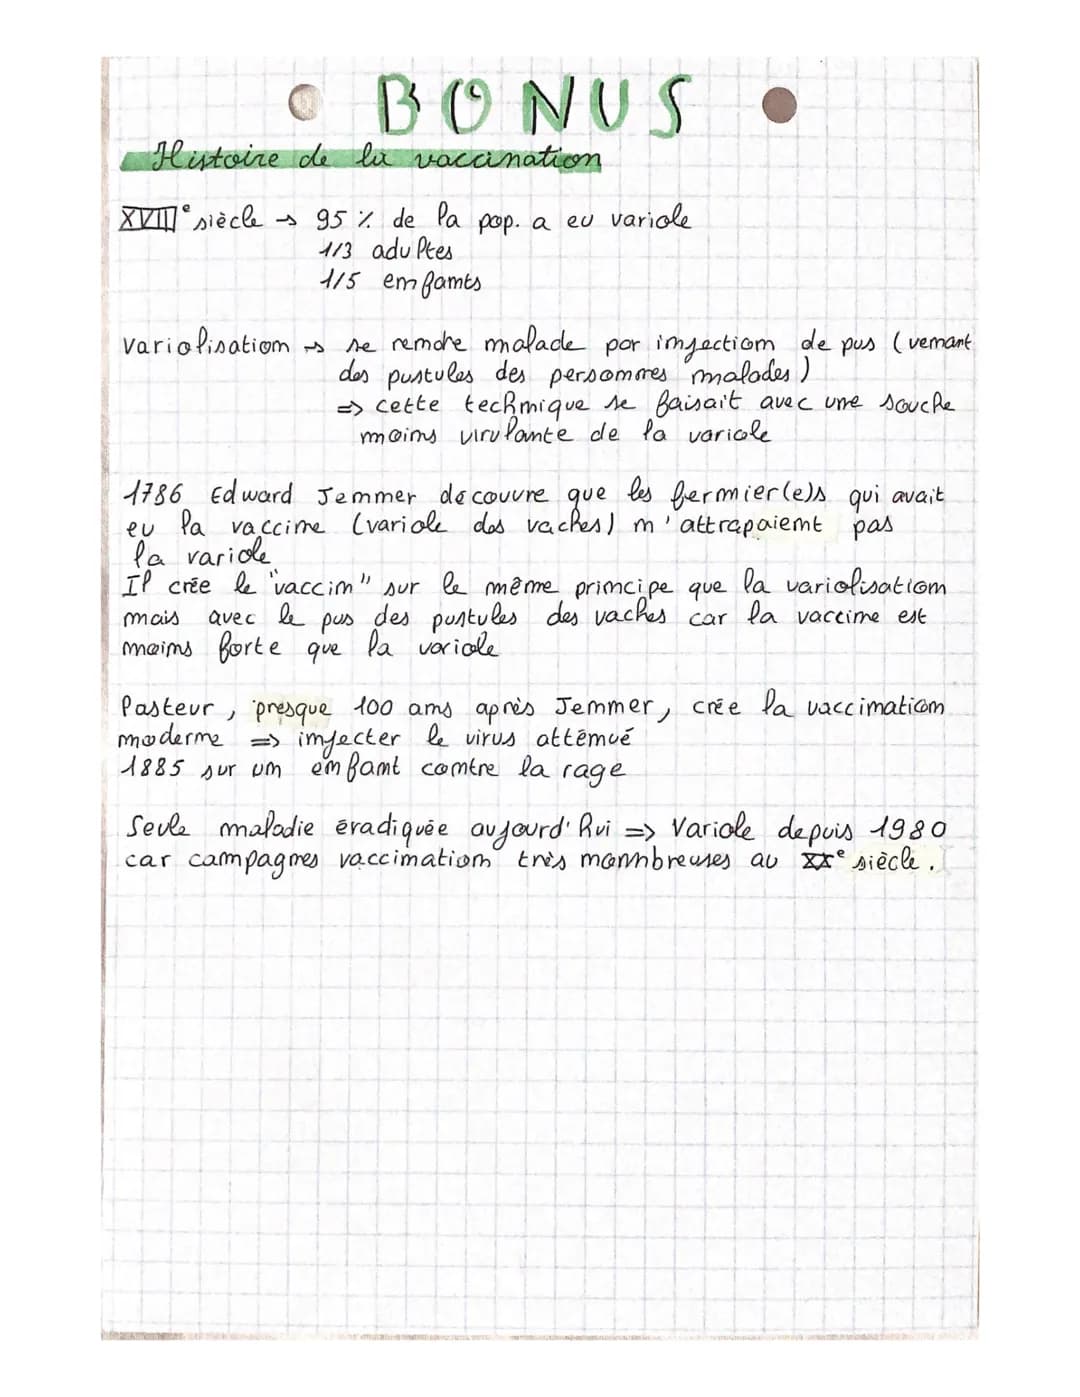 BONUS
Histoire de la vaccination
XVIIIe siècle → 95 % de la pop. a eu variole
1/3 adultes
1/5 enfants
variolisation → se rendre malade par injection de pus (venant
des pustules des personnes malades)
=> cette technique se faisait avec une souche
moins virulante de la variole
1786 Edward Jenner découvre que les fermier(e)s qui avait
eu la vaccine (variole des vaches) n'attrapaient pas
la variole
Il crée le "vaccin" sur le même principe que la variolisation
mais avec le pus des pustules des vaches car la vaccine est
moins forte que la variole
Pasteur, presque 100 ans après Jenner, crée la vaccination
moderne => injecter le virus atténué
1885 sur un enfant contre la rage
Seule maladie éradiquée aujourd'hui => Variole depuis 1980
car campagnes vaccination très nonnbreuses au XXe siècle.